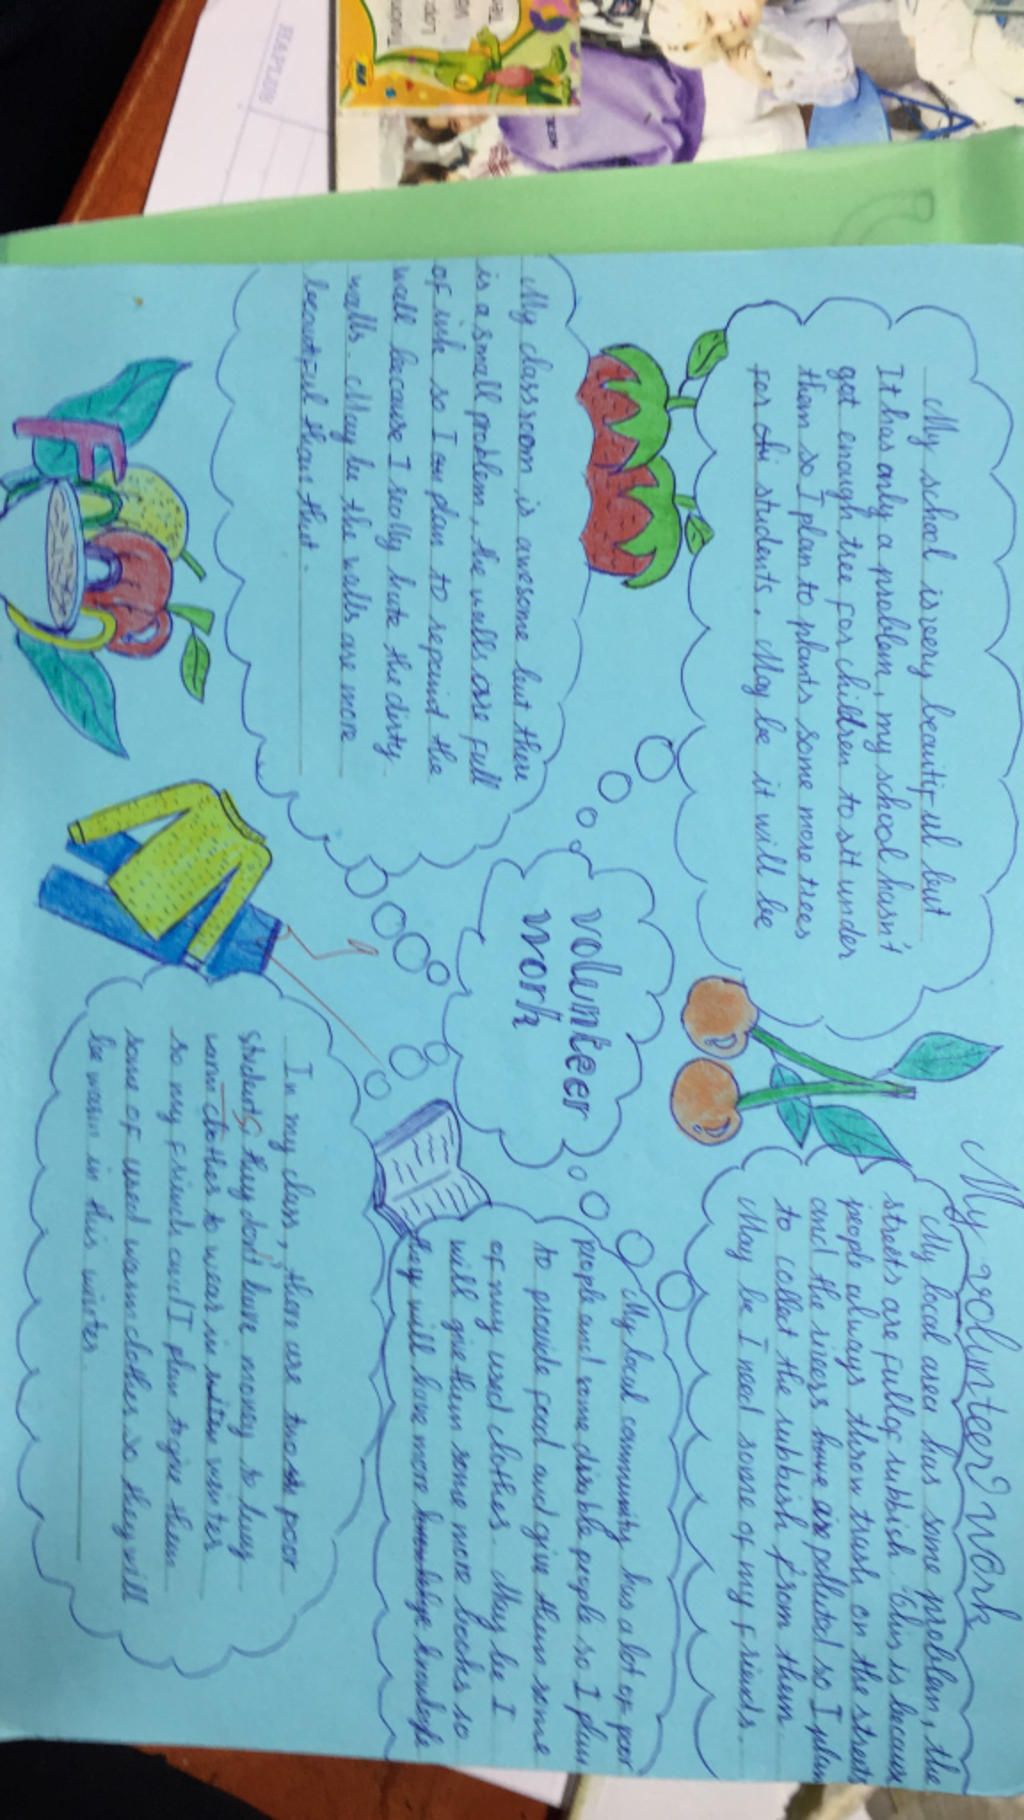 My volunteer work
My school is very beautiful but
It has only a problem, my school hasn't
got enough tree for children to sit under
them so I plan to plants some more trees
for students. May be it will be
My local area has some problem, the
streets are fully rubbish. This is because
people always thrown trash on the streets
and the rivers have polluted so I plan
to collect the rubbish from them.
May be I need some of my friends.
volunteer
work
My classroom is awesome but there
is a small problem, the walls are full
of ink so I plan to repaint the
wall because I really hate the dirty
walls. May be the walls are more
beautiful than that.
My local community has a lot of poor
people and some disable people so I plan
to provide food and give them some
of my used clothes. May be I
will give them some more books so
they will have more knowledge
In my class, there are two poor
students, they don't have money to buy
warm clothes to wear in winter
so my friends and I plan to give them
some of used warm clothes so they will
be warm in this winter.